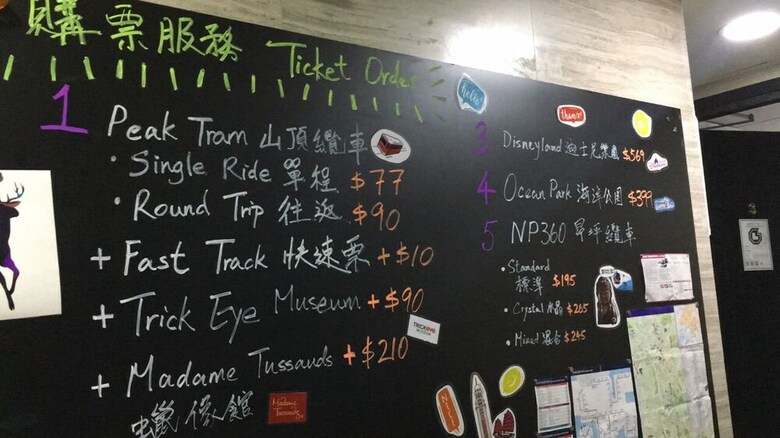 購票服務 Ticket Order
1 Peak Tram 山頂纜車
• Single Ride 單程 $77
• Round Trip 往返 $90
+ Fast Track 快速票 + $10
+ Trick Eye Museum + $90
TRICKEYE
+ Madame Tussauds + $210
蠟像館
Madame Tussauds
hello!
thanks!
3 Disneyland 迪士尼樂園 $569
4 Ocean Park 海洋公園 $399
5 NP360 昂坪纜車
• Standard
標準 $195
• Crystal 水晶 $265
• Mixed 混合 $245